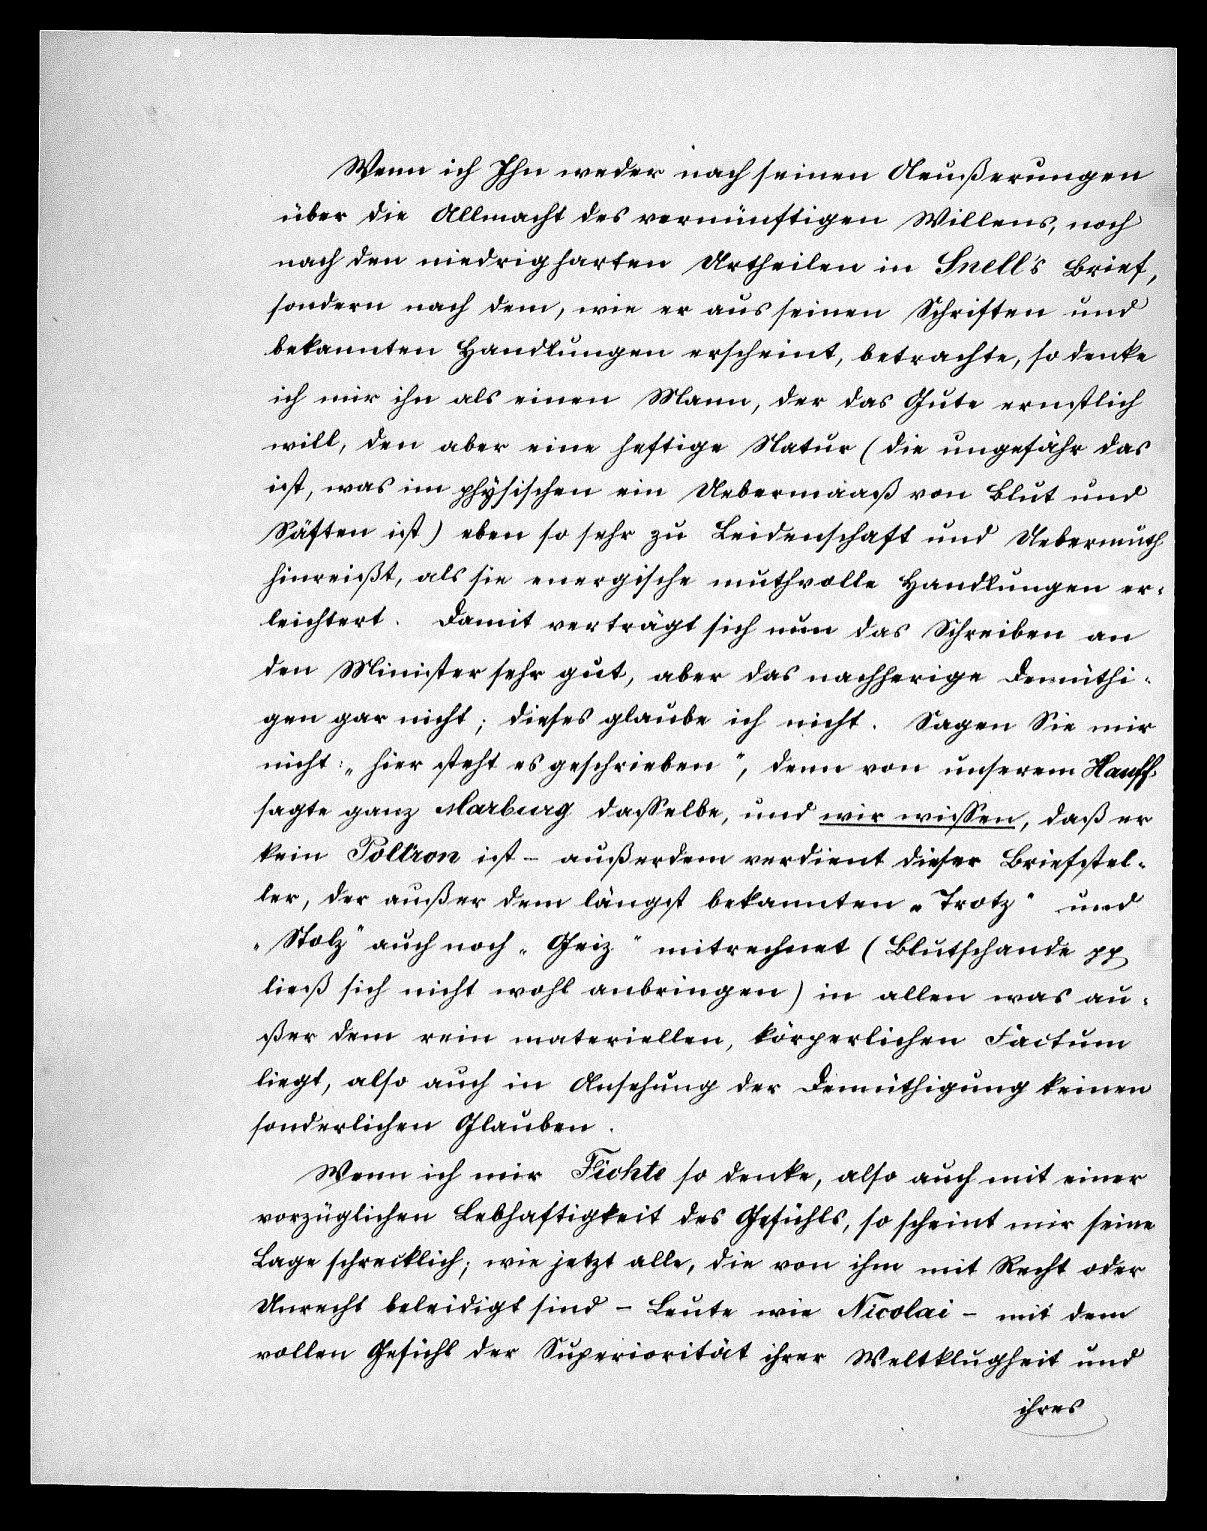 Wenn ich Ihn weder nach seinen Aeußerungen
über die Allmacht des vernünftigen Willens, noch
nach den niedrigharten Urtheilen in Snell's Brief,
sondern nach dem, wie er aus seinen Schriften und
bekannten Handlungen erscheint, betrachte, so denke
ich mir ihn als einen Mann, der das Gute ernstlich
will, den aber eine heftige Natur (die ungefähr das
ist, was im physischen ein Uebermaaß von Blut und
Säften ist) eben so sehr zu Leidenschaft und Uebermuth
hinreißt, als sie energische muthvolle Handlungen er-
leichtert. Damit verträgt sich nun das Schreiben an
den Minister sehr gut, aber das nachherige Demüthi-
gen gar nicht; dieses glaube ich nicht. Sagen Sie mir
nicht: „hier steht es geschrieben", denn von unserem Hauff
sagte ganz Marburg dasselbe, und wir wissen, daß er
kein Poltron ist – außerdem verdient dieser Briefstel-
ler, der außer dem längst bekannten „Trotz" und
„Stolz" auch noch „Geiz" mitrechnet (Blutschande pp
ließ sich nicht wohl anbringen) in allen was au-
ßer dem rein materiellen, körperlichen Factum
liegt, also auch in Ansehung der Demüthigung keinen
sonderlichen Glauben.
Wenn ich mir Fichte so denke, also auch mit einer
vorzüglichen Lebhaftigkeit des Gefühls, so scheint mir seine
Lage schrecklich; wie jetzt alle, die von ihm mit Recht oder
Unrecht beleidigt sind – Leute wie Nicolai – mit dem
vollen Gefühl der Superiorität ihrer Weltklugheit und
ihres